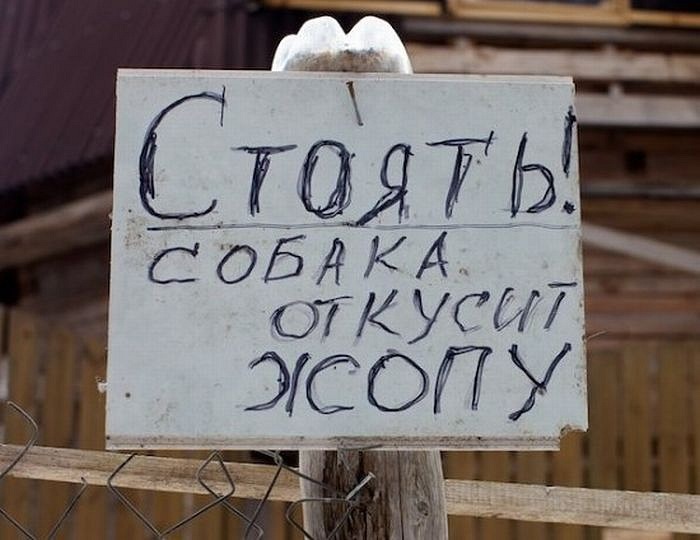 Стоять!
собака
откусит
жопу